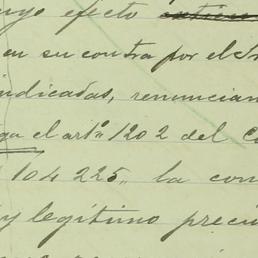 cuyo efecto
en su contra por el
indicadas, renuncian
el artº 1202 del
104 225,, la con
y legítimo preciu